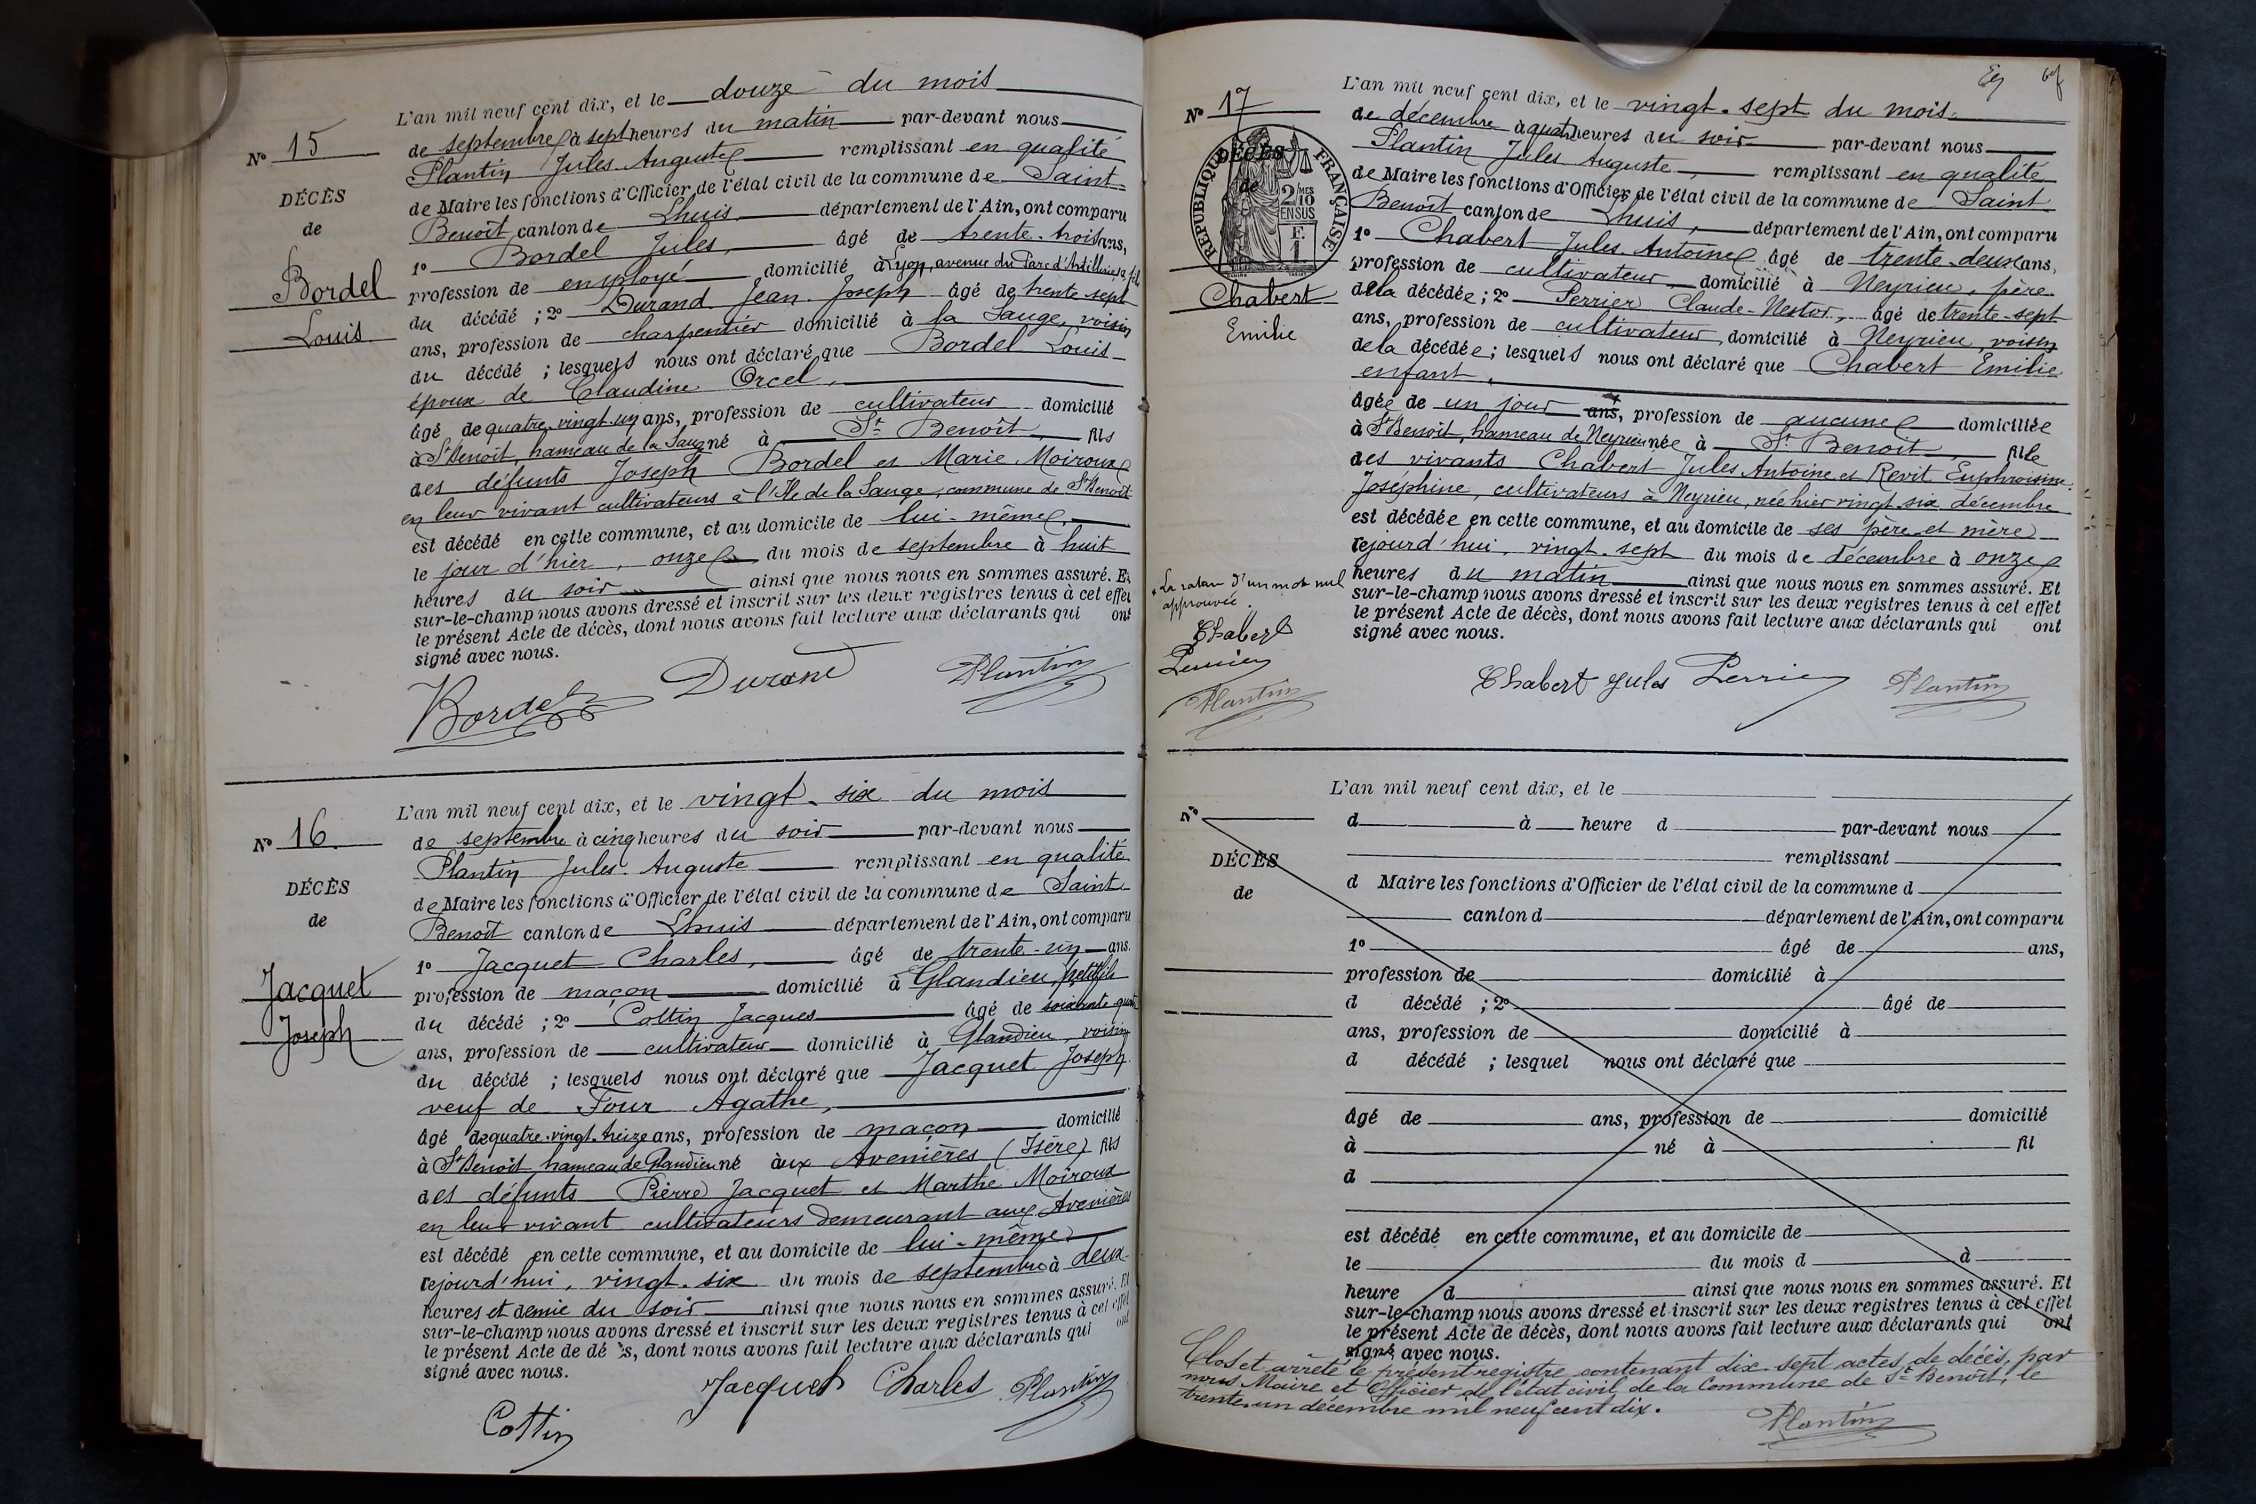 N° 15
DÉCÈS
de
Bordel
Louis
L'an mil neuf cent dix, et le douze du mois
de septembre à sept heures du matin par-devant nous
Plantin Jules Auguste remplissant en qualité
de Maire les fonctions d'Officier de l'état civil de la commune de Saint-
Benoît canton de Lhuis département de l'Ain, ont comparu
1° Bordel Jules, âgé de trente-trois ans,
profession de employé domicilié à Lyon, avenue du Parc d'Artillerie, fils
du décédé ; 2° Durand Jean-Joseph âgé de trente-sept
ans, profession de charpentier domicilié à la Sauge, voisin
du décédé ; lesquels nous ont déclaré que Bordel Louis
époux de Claudine Orcel,
âgé de quatre-vingt-un ans, profession de cultivateur domicilié
à St Benoît, hameau de la Sauge né à St Benoît, fils
des défunts Joseph Bordel et Marie Moiroux
en leur vivant cultivateurs à l'Ile de la Sauge, commune de St Benoît
est décédé en cette commune, et au domicile de lui-même,
le jour d'hier, onze du mois de septembre à huit
heures du soir ainsi que nous nous en sommes assuré. Et
sur-le-champ nous avons dressé et inscrit sur les deux registres tenus à cet effet
le présent Acte de décès, dont nous avons fait lecture aux déclarants qui ont
signé avec nous.
Bordel Durand Plantin
N° 16
DÉCÈS
de
Jacquet
Joseph
L'an mil neuf cent dix, et le vingt-six du mois
de septembre à cinq heures du soir par-devant nous
Plantin Jules Auguste remplissant en qualité
de Maire les fonctions d'Officier de l'état civil de la commune de Saint-
Benoît canton de Lhuis département de l'Ain, ont comparu
1° Jacquet Charles, âgé de trente-un ans.
profession de maçon domicilié à Glandieu, petit-fils
du décédé ; 2° Cottin Jacques âgé de soixante-quatre
ans, profession de cultivateur domicilié à Glandieu, voisin
du décédé ; lesquels nous ont déclaré que Jacquet Joseph
veuf de Four Agathe,
âgé de quatre-vingt-treize ans, profession de maçon domicilié
à St Benoît, hameau de Glandieu né aux Avenières (Isère) fils
des défunts Pierre Jacquet et Marthe Moiroux
en leur vivant cultivateurs demeurant aux Avenières
est décédé en cette commune, et au domicile de lui-même
cejourd'hui, vingt-six du mois de septembre à deux
heures et demie du soir ainsi que nous nous en sommes assuré. Et
sur-le-champ nous avons dressé et inscrit sur les deux registres tenus à cet effet
le présent Acte de décès, dont nous avons fait lecture aux déclarants qui ont
signé avec nous.
Jacquet Charles Plantin
Cottin
N° 17
RÉPUBLIQUE FRANÇAISE
2/10 EN SUS
F. 1
DÉCÈS
de
Chabert
Emilie
L'an mil neuf cent dix, et le vingt-sept du mois
de décembre à quatre heures du soir par-devant nous
Plantin Jules Auguste, remplissant en qualité
de Maire les fonctions d'Officier de l'état civil de la commune de Saint
Benoît canton de Lhuis, département de l'Ain, ont comparu
1° Chabert Jules Antoine âgé de trente-deux ans,
profession de cultivateur domicilié à Neyrieu, père
de la décédée ; 2° Perrier Claude-Nestor, âgé de trente-sept
ans, profession de cultivateur, domicilié à Neyrieu, voisin
de la décédée ; lesquels nous ont déclaré que Chabert Emilie
enfant,
âgée de un jour ans, profession de aucune domiciliée
à St Benoît, hameau de Neyrieu née à St Benoît, fille
des vivants Chabert Jules Antoine et Revit Euphroisine
Joséphine, cultivateurs à Neyrieu, née hier vingt-six décembre
est décédée en cette commune, et au domicile de ses père et mère
cejourd'hui, vingt-sept du mois de décembre à onze
heures du matin ainsi que nous nous en sommes assuré. Et
sur-le-champ nous avons dressé et inscrit sur les deux registres tenus à cet effet
le présent Acte de décès, dont nous avons fait lecture aux déclarants qui ont
signé avec nous.
+ La rature d'un mot nul
approuvée.
Chabert
Perrier
Plantin
Chabert Jules Perrier Plantin
N°
DÉCÈS
de
L'an mil neuf cent dix, et le
d à heure d par-devant nous
remplissant
d Maire les fonctions d'Officier de l'état civil de la commune d
canton d département de l'Ain, ont comparu
1° âgé de ans,
profession de domicilié à
d décédé ; 2° âgé de
ans, profession de domicilié à
d décédé ; lesquel nous ont déclaré que
âgé de ans, profession de domicilié
à né à fil
d
est décédé en cette commune, et au domicile de
le du mois d à
heure d ainsi que nous nous en sommes assuré. Et
sur-le-champ nous avons dressé et inscrit sur les deux registres tenus à cet effet
le présent Acte de décès, dont nous avons fait lecture aux déclarants qui ont
signé avec nous.
Clos et arrêté le présent registre contenant dix-sept actes de décès, par
nous Maire et Officier de l'état civil de la Commune de St Benoît, le
trente-un décembre mil neuf cent dix.
Plantin